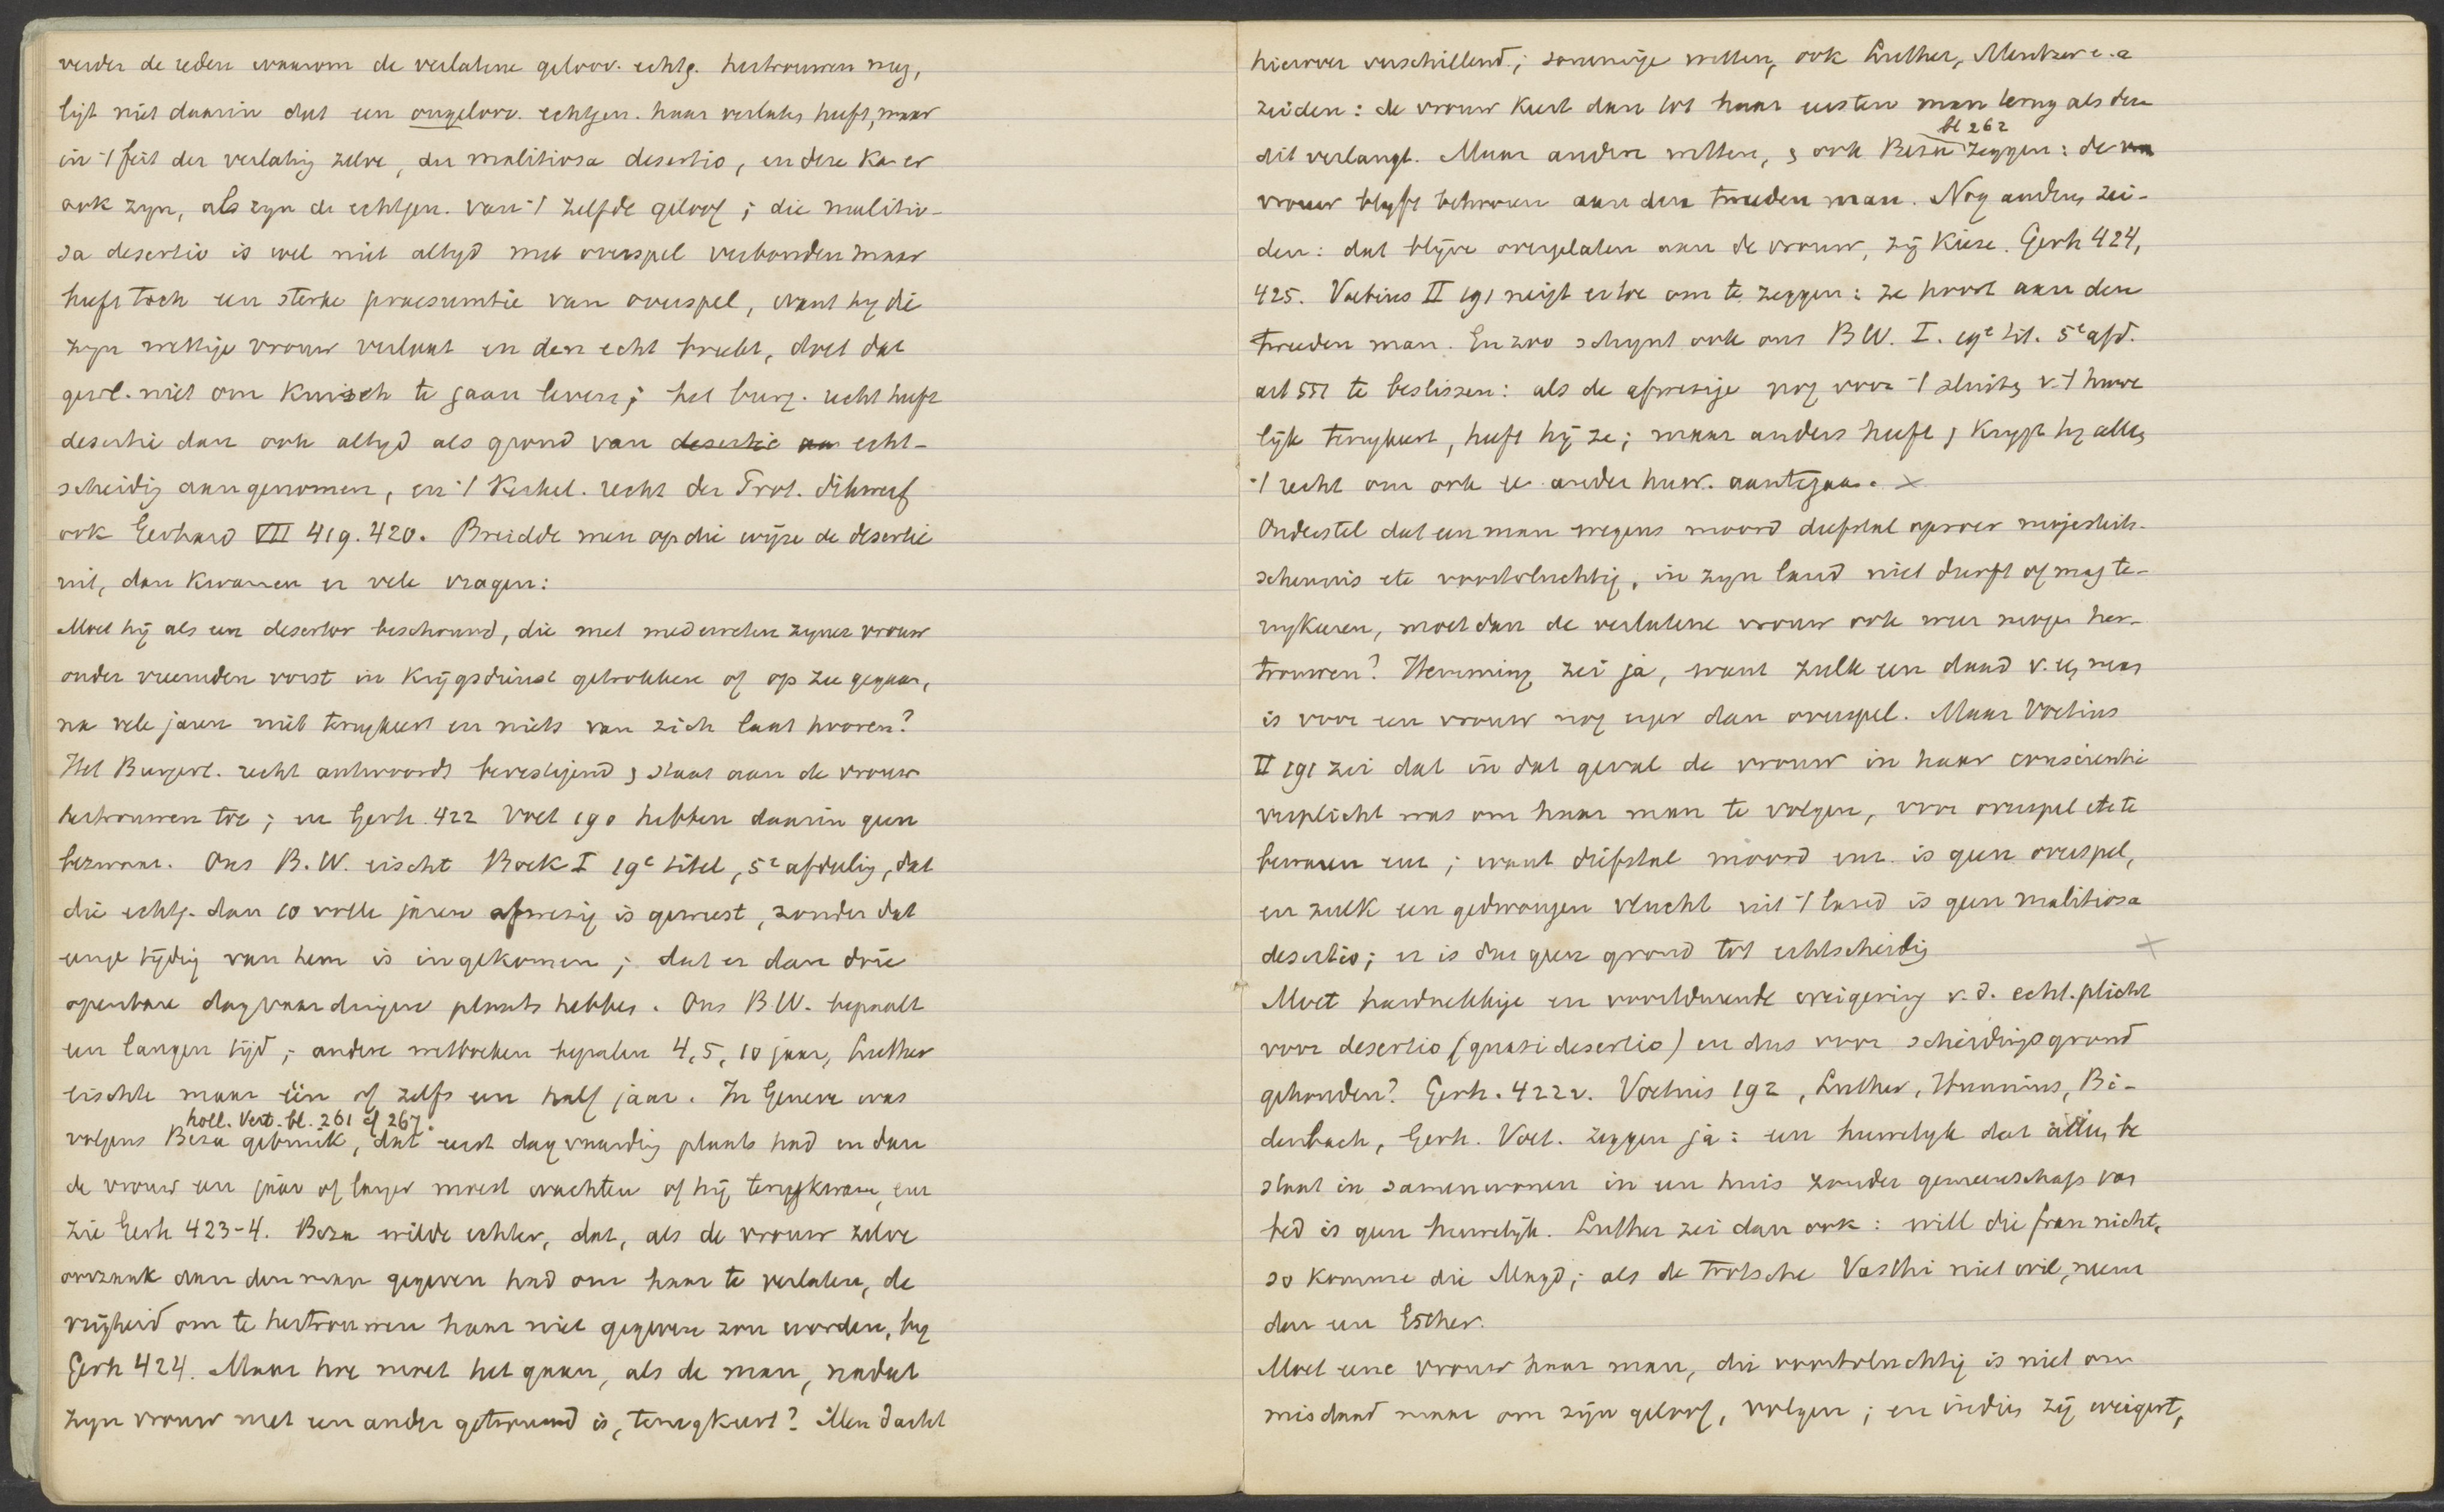 verder de reden waarom de verlatene geloov. echtg. hertrouwen mag,
ligt niet daarin dat een ongeloov. echtgen. haar verlaten heeft, maar
in 't feit der verlating zelve, der malitiosa desertio, en deze ka er
ook zyn, als zyn de echtgen. van 't zelfde geloof; die malitio-
sa desertio is wel niet altyd met overspel verbonden maar
heeft toch een sterke praesumtie van overspel, want hy die
zyn wettige vrouw verlaat en den echt breekt, doet dat
gew. niet om kuisch te gaan leven; het burg. recht heeft
desertie dan ook altyd als grond van desertie aan echt-
scheidig aangenomen, en 't Kerkel. recht der Prot. dikwerf
ook Gerhard VII 419. 420. Breidde men op die wijze de desertie
uit, dan kwamen er vele vragen:
Moet hij als een desertor beschouwd, die met medeweten zyner vrouw
onder vreemden vorst in krijgsdienst getrokken of op zee gegaan,
na vele jaren niet terugkeert en niets van zich laat hooren?
Het Burgerl. recht antwoordt bevestigend & staat aan de vrouw
hertrouwen toe; en Gerh. 422 Voet 190 hebben daarin geen
bezwaar. Ons B.W. eischt Boek I 19e titel, 5e afdeelig, dat
die echtg. dan 10 volle jaren afwezig is geweest, zonder dat
eenge tijdig van hem is ingekomen; dat er dan drie
openbare dagvaardingen plaats hebben. Ons BW. bepaalt
een langen tijd; andere wetboeken bepalen 4, 5, 10 jaar, Luther
eischte maar één of zelfs een half jaar. In Geneve was
holl. Vert. bl. 261 cf 267.
volgens Beza gebruik, dat eerst dagvaardig plaats had en dan
de vrouw een jaar of langer moest wachten of hij terugkwam, enz
zie Gerh 423-4. Beza wilde echter, dat, als de vrouw zelve
oorzaak aan den man gegeven had om haar te verlaten, de
vrijheid om te hertrouwen haar niet gegeven zou worden, by
Gerh 424. Maar hoe moet het gaan, als de man, nadat
zyn vrouw met een ander getrouwd is, terugkeert? Men dacht
hierover verschillend; sommige wetten, ook Luther, Mentzer e.a
zeiden: de vrouw keert dan tot haar eersten man terug als deze
bl 262
dit verlangt. Maar andere wetten, & ook Beza zeggen: de vro
vrouw blyft behooren aan den tweeden man. Nog anderen zei-
den: dat blijve overgelaten aan de vrouw, zij kieze. Gerh 424,
425. Voetius II 191 neigt ertoe om te zeggen: ze hoort aan den
tweeden man. En zoo schynt ook ons BW. I. 19e tit. 5e afd.
art 551 te beslissen: als de afwezige nog voor 't sluiten v. 't huwe
lijk terugkeert, heeft hij ze; maar anders heeft & krygt hy alleen
't recht om ook ee ander huw. aantegaan. x
Onderstel dat een man wegens moord diefstal oproer majesteits-
schennis etc voortvluchtig, in zyn land niet durft of mag te-
rugkeeren, moet dan de verlatene vrouw ook weer mogen her-
trouwen? Hemming zei ja, want zulk een daad v. een man
is voor een vrouw nog erger dan overspel. Maar Voetius
II 191 zei dat in dat geval de vrouw in haar conscientie
verplicht was om haar man te volgen, voor overspel etc te
bewaren enz; want diefstal moord enz. is geen overspel,
en zulk een gedwongen vlucht uit 't land is geen malitiosa
desertio; er is dus geen grond tot echtscheidig x
Moet hardnekkige en voortdurende weigering v. d. echt. plicht
voor desertio (quasi desertio) en dus voor scheidingsgrond
gehouden? Gerh. 422 v. Voetius 192, Luther, Hunnius, Bi-
denbach, Gerh. Voet. zeggen ja: een huwelyk dat alleen be
staat in samenwonen in een huis zonder gemeenschap van
bed is geen huwelijk. Luther zei dan ook: will die frau nicht,
so komme die Magd; als de trotsche Vasthi niet wil, neem
dan een Esther.
Moet eene vrouw haar man, die voortvluchtig is niet om
misdaad maar om zijn geloof, volgen; en indien zij weigert,